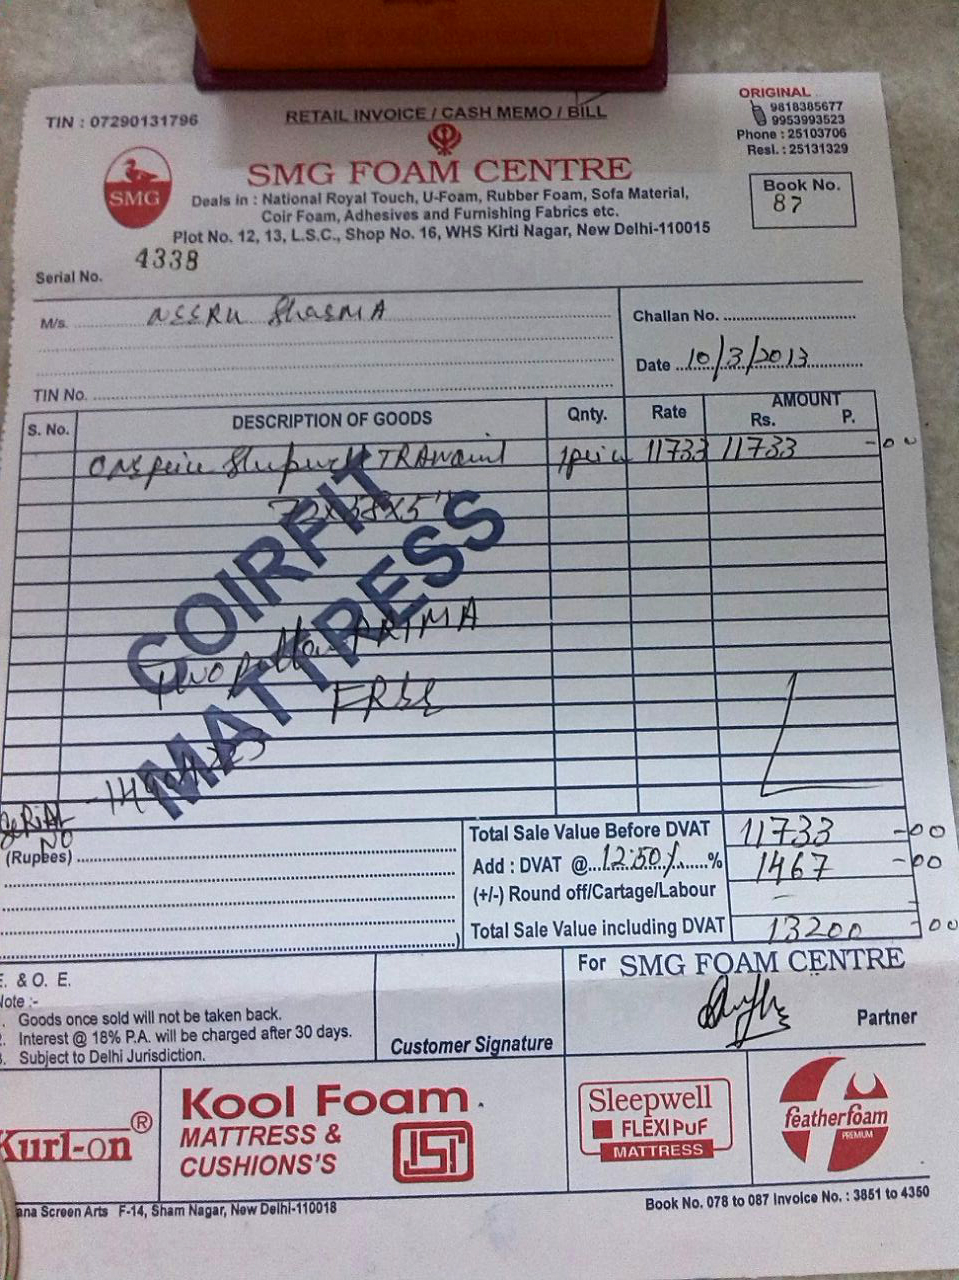 ORIGINAL
TIN : 07290131796
RETAIL INVOICE / CASH MEMO / BILL
9818385677
9953993523
Phone : 25103706
Resl. : 25131329
SMG
SMG FOAM CENTRE
Deals in : National Royal Touch, U-Foam, Rubber Foam, Sofa Material,
Coir Foam, Adhesives and Furnishing Fabrics etc.
Plot No. 12, 13, L.S.C., Shop No. 16, WHS Kirti Nagar, New Delhi-110015
Book No.
87
Serial No. 4338
M/s. NEERU ShARMA
Challan No.
Date 10/3/2013
TIN No.
S. No. DESCRIPTION OF GOODS Qnty. Rate AMOUNT
Rs. P.
1 11733 11733 -00
72x
x5"
COIRFIT
MATTRESS
Two PRIMA
FREE
SERIAL
NO
(Rupees)
Total Sale Value Before DVAT 11733 -00
Add : DVAT @ 12.50% % 1467 -00
(+/-) Round off/Cartage/Labour -
Total Sale Value including DVAT 13200 -00
E. & O. E.
Note :-
Goods once sold will not be taken back.
2. Interest @ 18% P.A. will be charged after 30 days.
3. Subject to Delhi Jurisdiction.
Customer Signature
For SMG FOAM CENTRE
Partner
Kurl-on ®
Kool Foam
MATTRESS &
CUSHIONS'S
ISI
Sleepwell
FLEXI PUF
MATTRESS
featherfoam
PREMIUM
ana Screen Arts F-14, Sham Nagar, New Delhi-110018
Book No. 078 to 087 Invoice No. : 3851 to 4350